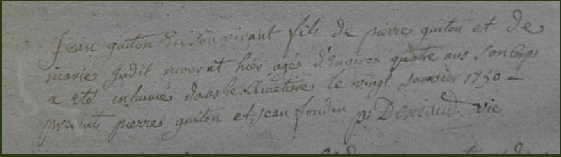 Jean guiton En son vivant fils de pierre guiton et de
marie judit mourut hier agés d'Environ quatre ans son corps
a été inhumé dans le Cimetiere le vingt janvier 1750
presents pierres guiton et jean foudin p. Desriaud. vic